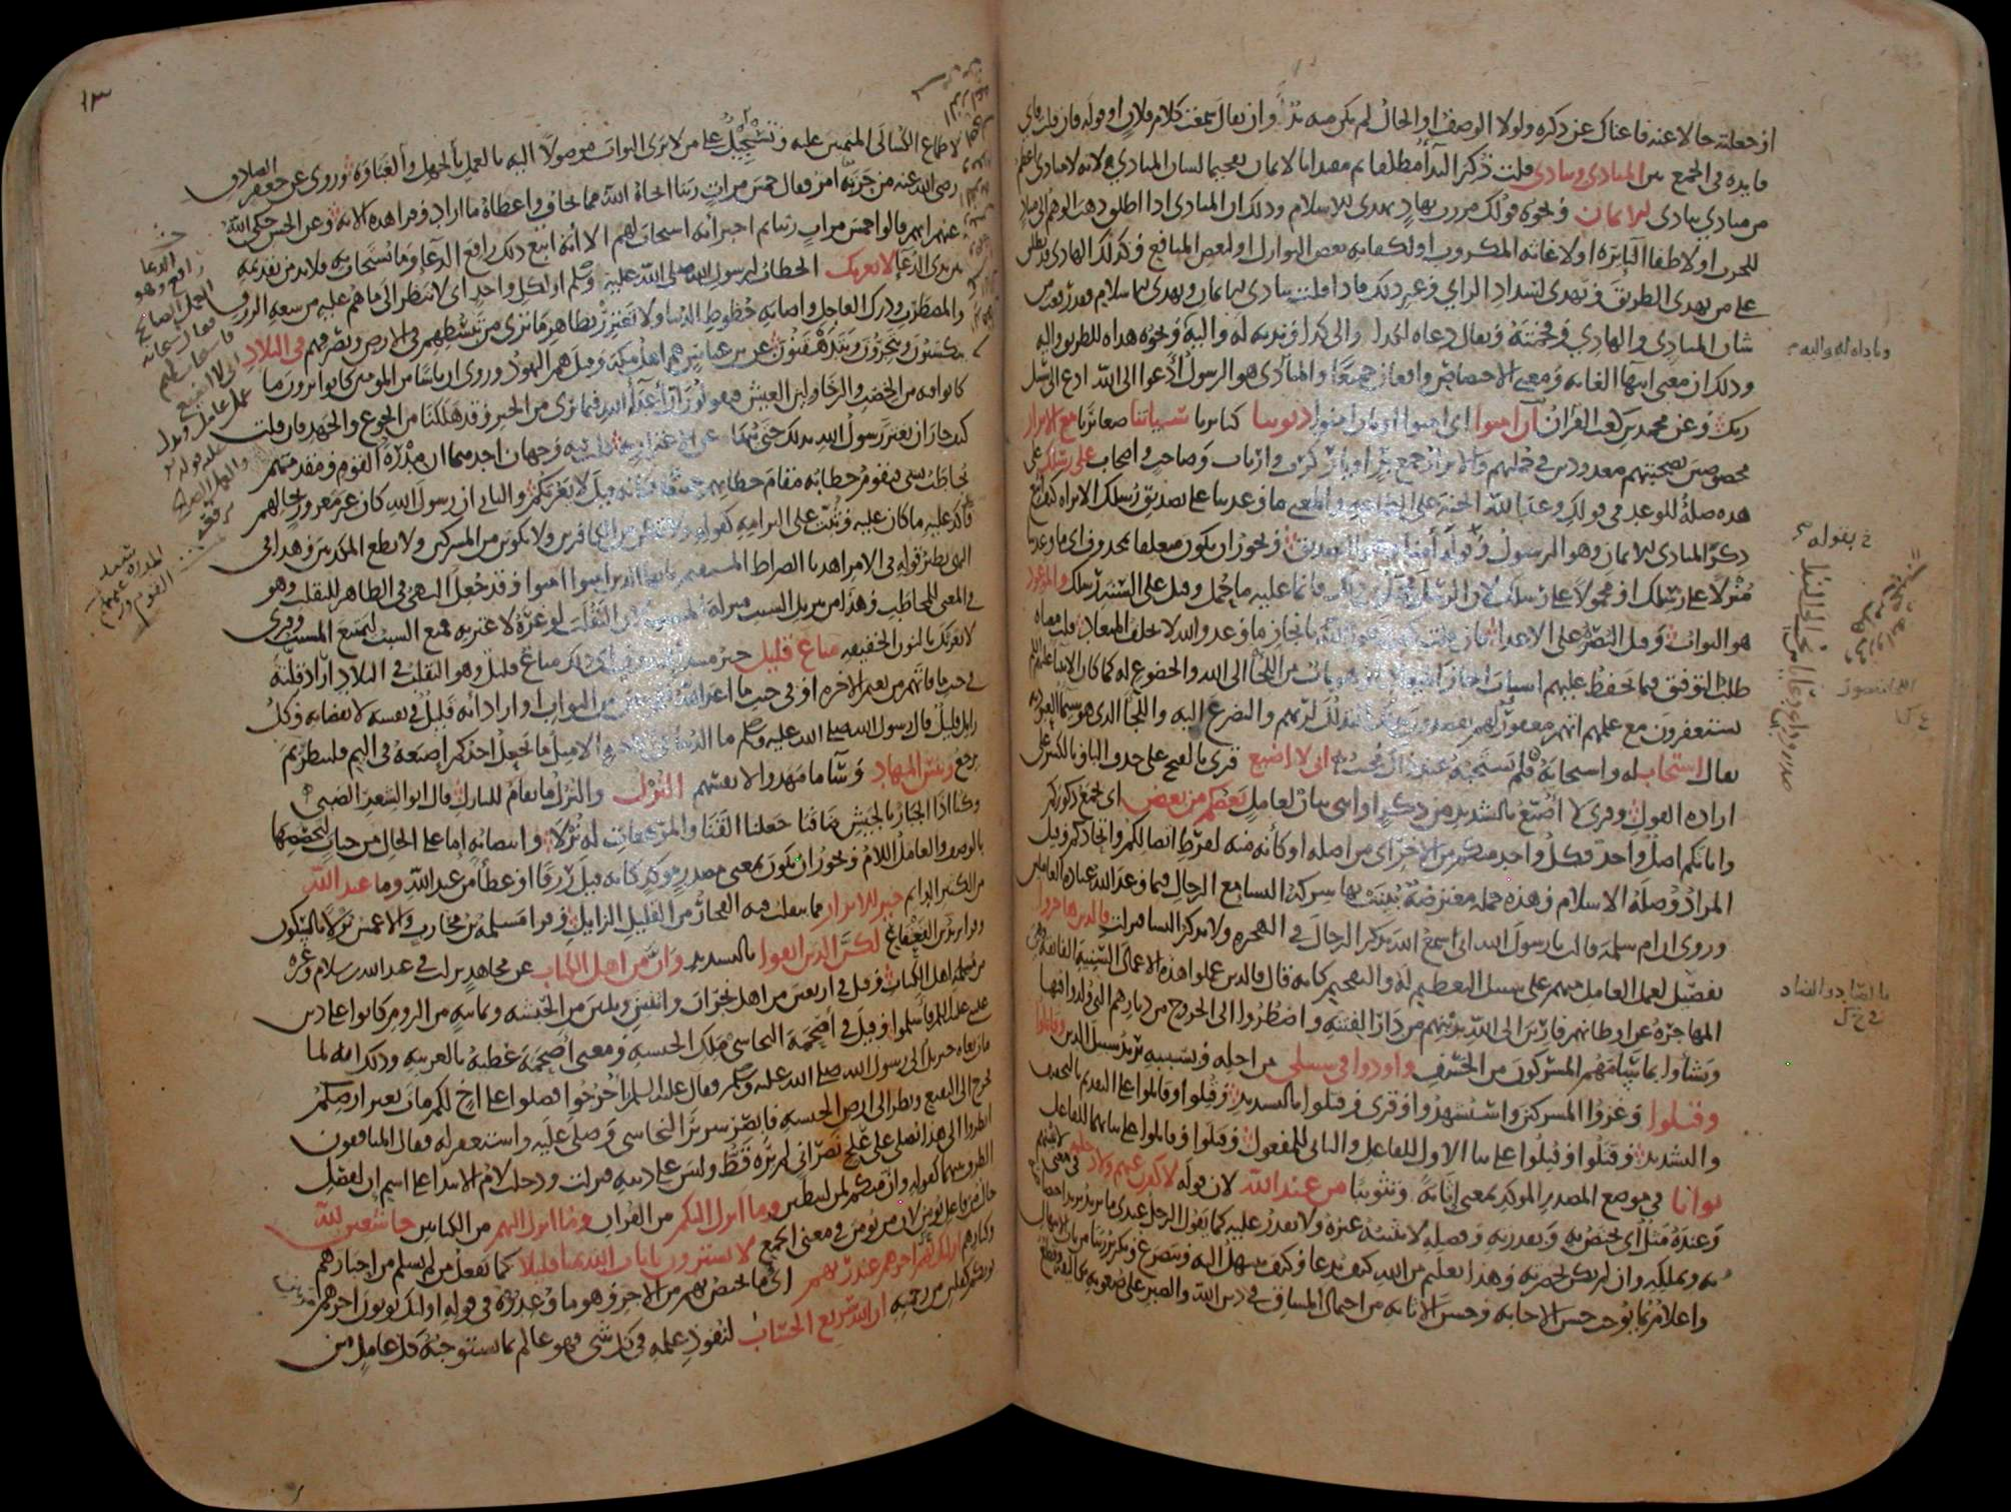 او جعلته حالا عنه فاغناك عن ذكره ولولا الوصف او الحال لم يكن منه بد وان يقال سمعت كلام فلان او قوله فان قلت فاي
فايدة في الجمع بين المنادي وينادي قلت ذكر الندا مطلقا ثم مقيدا بالايمان تفخيما لشان المنادي لانه لا منادي اعظم
من منادي ينادي للايمان ونحوه قولك مررت بهاد يهدي للاسلام وذلك ان المنادي اذا اطلق ذهب الوهم الى مناد
للحرب او لاطفا النايرة او لاغاثة المكروب او لكفاية بعض النوازل او لبعض المنافع وكذلك الهادي قد يطلق
على من يهدي للطريق ويهدي لسداد الراي وغير ذلك فاذا قلت ينادي للايمان ويهدي للاسلام فقد رفعت من
شان المنادي والهادي وفخمته ويقال دعاه لكذا والى كذا وندبه له واليه ونحوه هداه للطريق واليه
وذلك ان معنى انتها الغاية ومعنى الاختصاص واقعان جميعا والمنادي هو الرسول ادعوا الى الله ادع الى سبيل
ربك وعن محمد بن كعب القران ان امنوا اي امنوا او بان امنوا ذنوبنا كبائرنا سيئاتنا صغائرنا مع الابرار
مخصوصين بصحبتهم معدودين في جملتهم والابرار جمع بر او بار كرب وارباب وصاحب واصحاب على رسلك على
هذه صلة للوعد في قولك وعد الله الجنة على الطاعة والمعنى ما وعدتنا على تصديق رسلك الا تراه كيف اتبع
ذكر المنادي للايمان وهو الرسول وقوله امنا وهو التصديق ويجوز ان يكون متعلقا بمحذوف اي ما وعدتنا
منزلا على رسلك او محمولا على رسلك لان الرسل محملون ذلك فانما عليه ما حمل وقيل على السنة رسلك والموعود
هو الثواب وقيل النصرة على الاعدا فان قلت كيف دعوا الله بانجاز ما وعد والله لا يخلف الميعاد قلت معناه
طلب التوفيق فيما يحفظ عليهم اسباب انجاز الميعاد او هو باب من اللجا الى الله والخضوع له كما كان الانبيا عليهم السلام
يستغفرون مع علمهم انهم مغفور لهم يقصدون بذلك التذلل لربهم والتضرع اليه واللجا الذي هو سيما العبودية
يقال استجاب له واستجابه فلم يستجبه عند ذاك مجيب اني لا اضيع قرئ بالفتح على حذف الباء وبالكسر على
ارادة القول وقرئ لا اضيع بالتشديد من ذكر او انثى بيان لعامل بعضكم من بعض اي يجمع ذكوركم
واناثكم اصل واحد فكل واحد منكم من الاخر اي من اصله او كانه منه لفرط اتصالكم واتحادكم وقيل
المراد وصلة الاسلام وهذه جملة معترضة بينت بها شركة النساء مع الرجال فيما وعد الله عباده العاملين
وروي ان ام سلمة قالت يا رسول الله اني اسمع الله يذكر الرجال في الهجرة ولا يذكر النسا فنزلت فالذين هاجروا
تفصيل لعمل العامل منهم على سبيل التعظيم له والتفخيم كانه قال فالذين عملوا هذه الاعمال السنية الفائقة وهي
المهاجرة عن اوطانهم فارين الى الله بدينهم من دار الفتنة واضطروا الى الخروج من ديارهم التي ولدوا فيها
ونشأوا بما سامهم المشركون من الخسف واوذوا في سبيلي من اجله وبسببه يريد سبيل الدين وقاتلوا
وقتلوا وغزوا المشركين واستشهدوا وقرئ وقتلوا بالتشديد وقتلوا وقاتلوا على التقديم بالتخفيف
والتشديد وقتلوا وقتلوا على بنا الاول للفاعل والثاني للمفعول وقتلوا وقاتلوا على بنائهما للفاعل
ثوابا في موضع المصدر الموكد بمعنى اثابة وتثويبا من عند الله لان قوله لاكفرن عنهم ولادخلنهم في معنى لاثيبنهم
وعنده مثل اي يختص به وبقدرته وفضله لا يثيبه غيره ولا يقدر عليه كما يقول الرجل عندي ما تريد يريد اختصاصه
به وبملكه وان لم يكن بحضرته وهذا تعليم من الله كيف يدعا وكيف يبتهل اليه ويتضرع وتكرير ربنا من باب الابتهال
واعلام بما يوجب حسن الاجابة وحسن الاثابة من احتمال المشاق في دين الله والصبر على صعوبة تكاليفه وقطع
وناداه له واليه
بقوله
بالصاد والضاد
١٣
لاطماع الكسالى المتمنين عليه وتسجيل على من لا يرى الثواب موصولا اليه بالعمل بالجهل والغباوة وروي عن جعفر الصادق
رضي الله عنه من حزبه امر فقال خمس مرات ربنا انجاه الله مما يخاف واعطاه ما اراد وقرا هذه الاية وعن الحسن حكى الله
عنهم انهم قالوا خمس مرات ربنا ثم اخبر انه استجاب لهم الا انه اتبع ذلك رافع الدعا وما يستجاب به فلابد من تقديمه
بين يدي الدعا لا يغرنك الخطاب لرسول الله صلى الله عليه وسلم او لكل واحد اي لا تنظر الى ما هم عليه من سعة الرزق
والمضطرب ودرك العاجل واصابة حظوظ الدنيا ولا تغترر بظاهر ما ترى من تبسطهم في الارض وتصرفهم في البلاد
يتكسبون ويتجرون ويتدهقنون عن ابن عباس هم اهل مكة وقيل هم اليهود وروي ان ناسا من المومنين كانوا يرون ما
كانوا فيه من الخصب والرخا ولين العيش فيقولون ان اعدا الله فيما نرى من الخير وقد هلكنا من الجوع والجهد فان قلت
كيف جاز ان يغتر رسول الله بذلك حتى نهي عن الاغترار به قلت فيه وجهان احدهما ان مدرة القوم ومقدمهم
يخاطب بشي فيقوم خطابه مقام خطابهم جميعا فكانه قيل لا يغرنكم والثاني ان رسول الله كان غير مغرور بحالهم
فاكد عليه ما كان عليه وثبت على التزامه كقوله ولا تكن من الكافرين ولا تكونن من المشركين ولا تطع المكذبين وهذا في
النهي نظير قوله في الامر اهدنا الصراط المستقيم يا ايها الذين امنوا امنوا وقد جعل النهي في الظاهر للتقلب وهو
في المعنى للمخاطب وهذا من تنزيل السبب منزلة المسبب لان التقلب لو غره لاغتر به فمنع السبب ليمتنع المسبب وقرئ
لا يغرنك بالنون الخفيفة متاع قليل خبر مبتدا محذوف اي ذلك متاع قليل وهو التقلب في البلاد اراد قلته
في جنب ما فاتهم من نعيم الاخرة او في جنب ما اعد الله للمومنين من الثواب او اراد انه قليل في نفسه لانقضائه وكل
زايل قليل قال رسول الله صلى الله عليه وسلم ما الدنيا في الاخرة الا مثل ما يجعل احدكم اصبعه في اليم فلينظر بم
يرجع وبئس المهاد وسا ما مهدوا لانفسهم النزل والنزل ما يقام للنازل قال ابو الشعر الضبي
وكنا اذا الجبار بالجيش ضافنا جعلنا القنا والمرهفات له نزلا وانتصابه اما على الحال من جنات لتخصصها
بالوصف والعامل اللام ويجوز ان يكون بمعنى مصدر موكد كانه قيل رزقا او عطا من عند الله وما عند الله
من الكثير الدايم خير للابرار مما يتقلب فيه الفجار من القليل الزايل وقرا مسلمة بن محارب والاعمش نزلا بالسكون
وقرا يزيد بن القعقاع لكن الذين اتقوا بالتشديد وان من اهل الكتاب عن مجاهد نزلت في عبد الله بن سلام وغيره
من مسلمة اهل الكتاب وقيل في اربعين من اهل نجران واثنين وثلثين من الحبشة وثمانية من الروم كانوا على دين
عيسى عليه السلم فاسلموا وقيل في اصحمة النجاشي ملك الحبشة ومعنى اصحمة عطية بالعربية وذلك انه لما
مات نعاه جبريل الى رسول الله صلى الله عليه وسلم فقال عليه السلم اخرجوا فصلوا على اخ لكم مات بغير ارضكم
فخرج الى البقيع ونظر الى ارض الحبشة فابصر سرير النجاشي وصلى عليه واستغفر له فقال المنافقون
انظروا الى هذا يصلي على علج نصراني لم يره قط وليس على دينه فنزلت ودخلت لام الابتدا على اسم ان لفصل
الظرف بينهما كقوله وان منكم لمن ليبطئن وما انزل اليكم من القران وما انزل اليهم من الكتابين خاشعين لله
حال من فاعل يومن لان من يومن في معنى الجمع لا يشترون بايات الله ثمنا قليلا كما يفعل من لم يسلم من احبارهم
وكبارهم اولئك لهم اجرهم عند ربهم اي ما يختص بهم من الاجر وهو ما وعدوه في قوله اولئك يوتون اجرهم مرتين
يوتكم كفلين من رحمته ان الله سريع الحساب لنفوذ علمه في كل شي فهو عالم بما يستوجبه كل عامل من